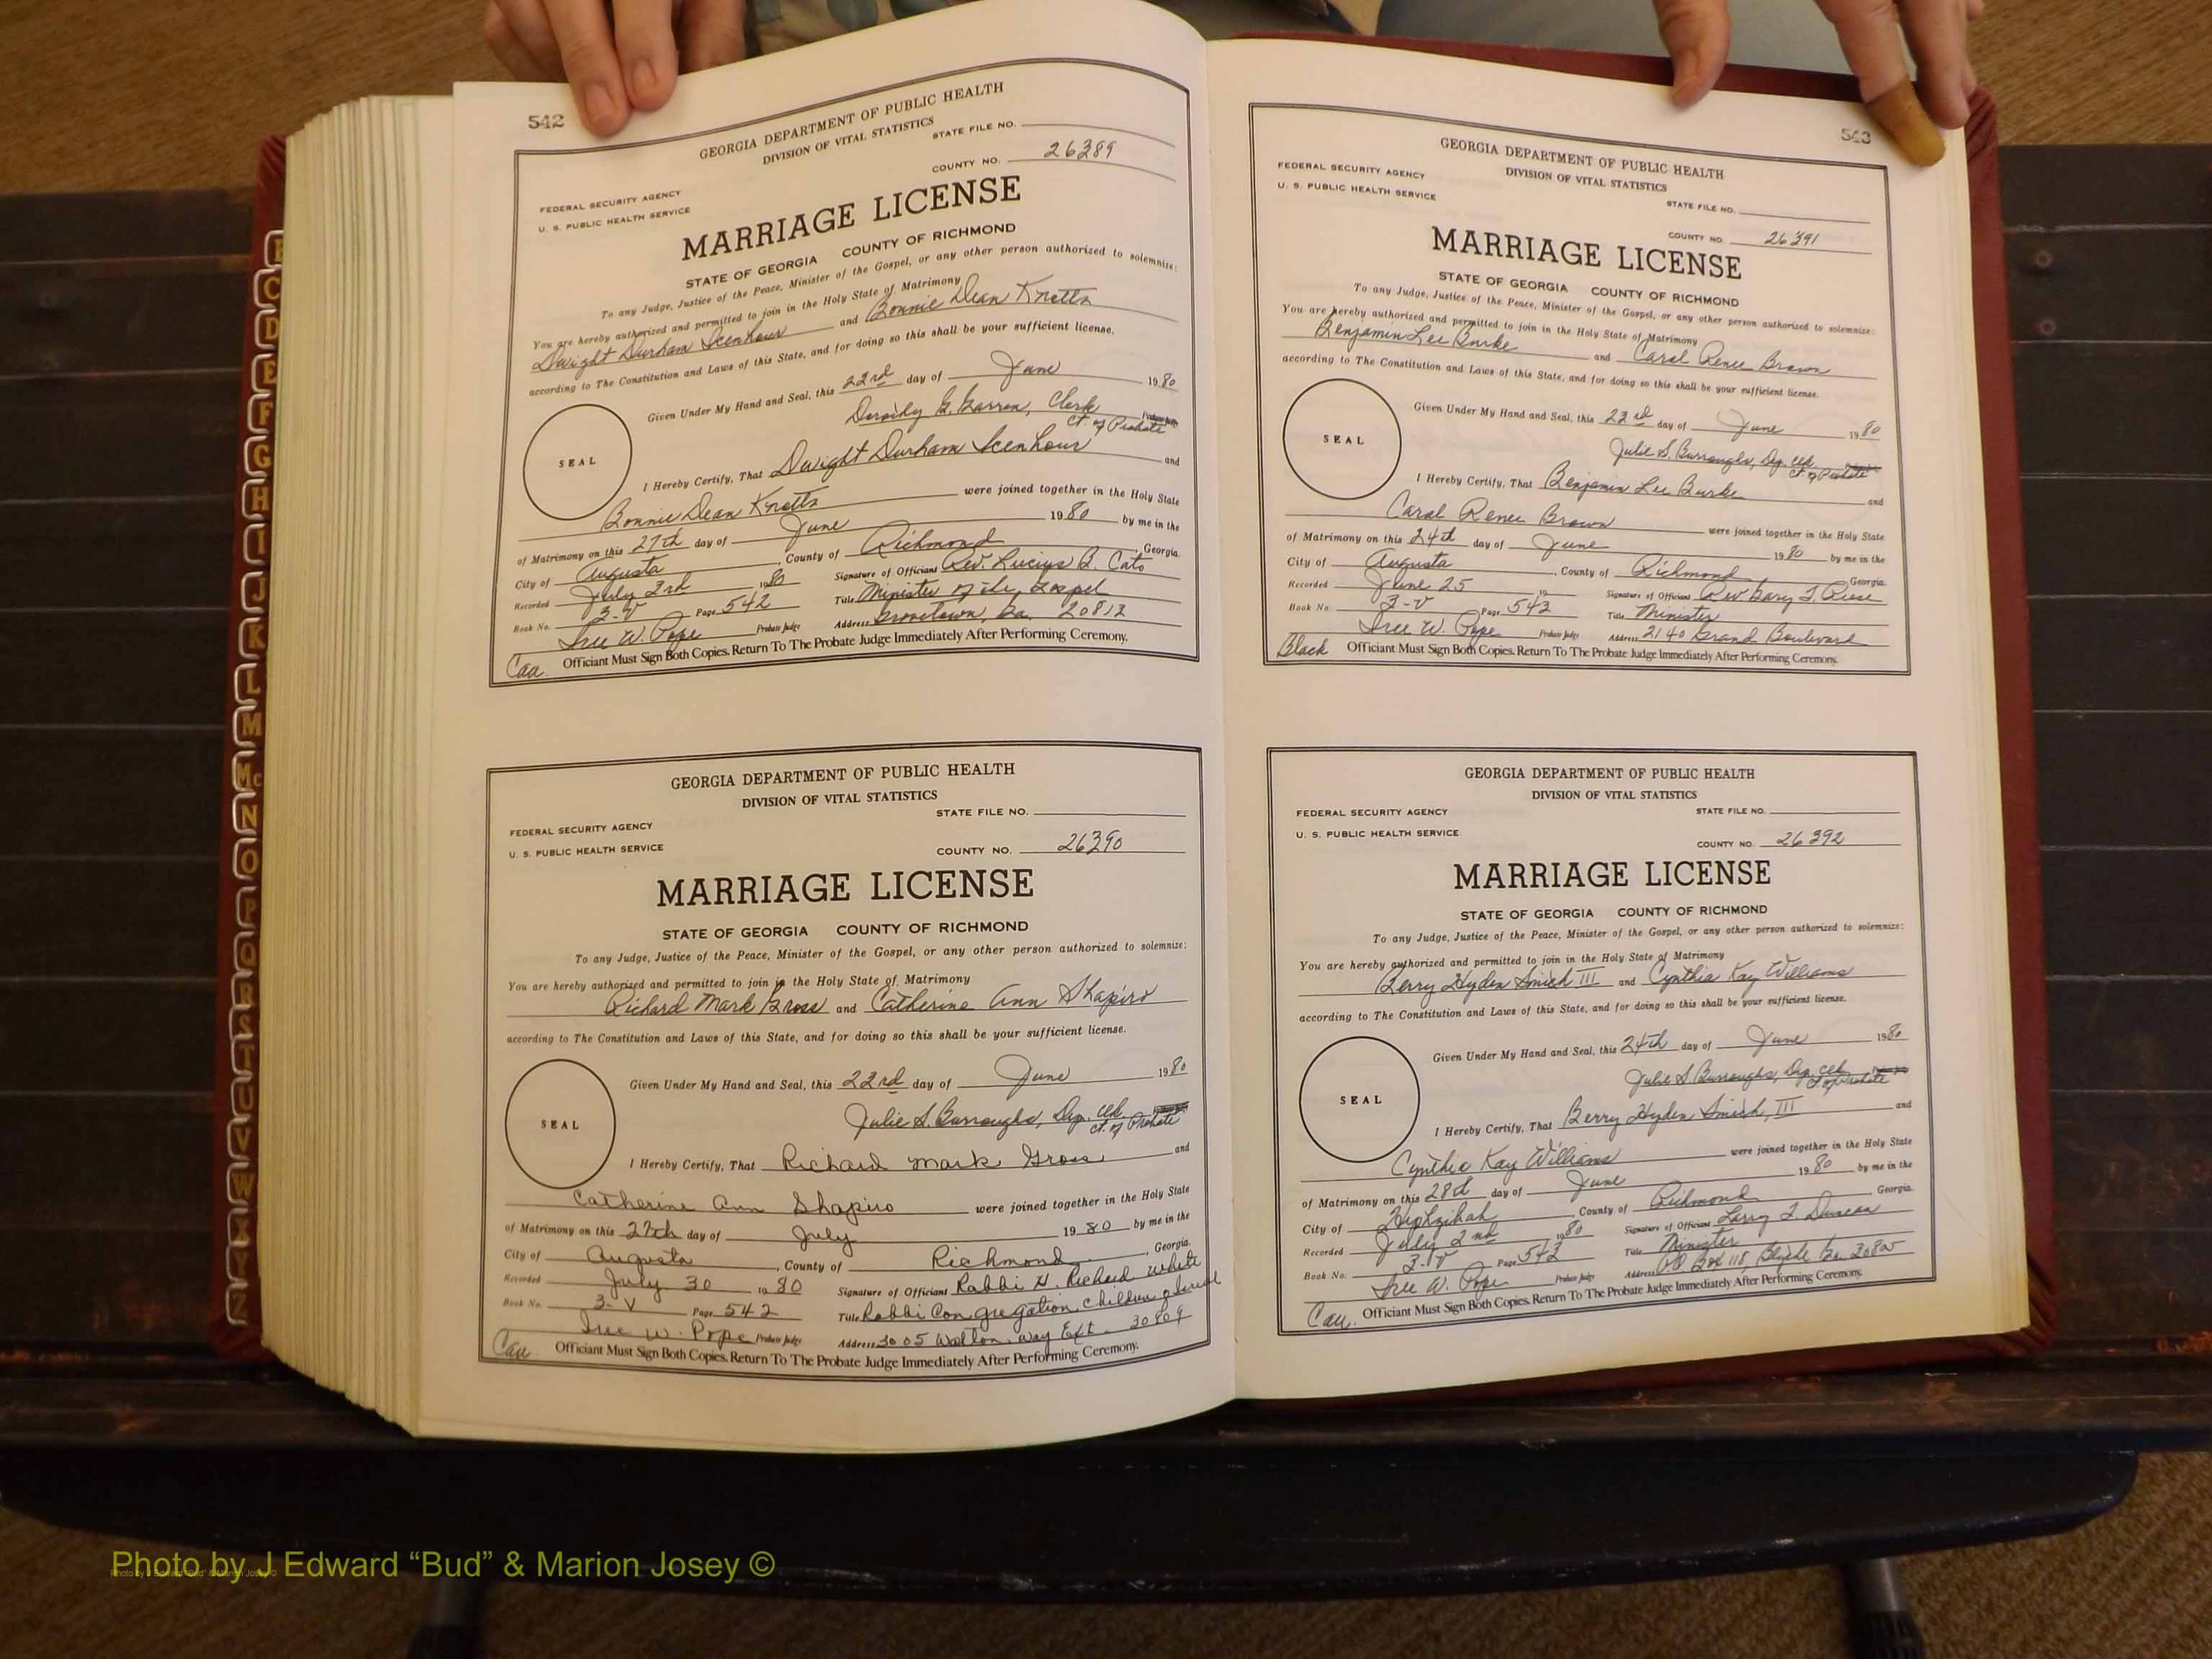 542
GEORGIA DEPARTMENT OF PUBLIC HEALTH
DIVISION OF VITAL STATISTICS
STATE FILE NO.
COUNTY NO. 26389
FEDERAL SECURITY AGENCY
U. S. PUBLIC HEALTH SERVICE
MARRIAGE LICENSE
STATE OF GEORGIA COUNTY OF RICHMOND
To any Judge, Justice of the Peace, Minister of the Gospel, or any other person authorized to solemnize:
You are hereby authorized and permitted to join in the Holy State of Matrimony
Dwight Durham Icenhour and Bonnie Dean Knotts
according to The Constitution and Laws of this State, and for doing so this shall be your sufficient license.
Given Under My Hand and Seal, this 23rd day of June 1980
Clerk
Ct. of Probate
SEAL
I Hereby Certify, That Dwight Durham Icenhour and
Bonnie Dean Knotts were joined together in the Holy State
of Matrimony on this 27th day of June 1980 by me in the
City of Augusta, County of Richmond, Georgia.
Recorded July 3rd 1980 Signature of Officiant Rev. Lucius B. Cato
Book No. 3-V Page 542 Title Minister of the Gospel
Iree W. Pope Probate Judge Address Grovetown, Ga. 30813
Cau. Officiant Must Sign Both Copies. Return To The Probate Judge Immediately After Performing Ceremony.
GEORGIA DEPARTMENT OF PUBLIC HEALTH
DIVISION OF VITAL STATISTICS
STATE FILE NO.
FEDERAL SECURITY AGENCY
U. S. PUBLIC HEALTH SERVICE
COUNTY NO. 26390
MARRIAGE LICENSE
STATE OF GEORGIA COUNTY OF RICHMOND
To any Judge, Justice of the Peace, Minister of the Gospel, or any other person authorized to solemnize:
You are hereby authorized and permitted to join in the Holy State of Matrimony
Richard Mark Gross and Catherine Ann Shapiro
according to The Constitution and Laws of this State, and for doing so this shall be your sufficient license.
Given Under My Hand and Seal, this 23rd day of June 1980
Julie S. Burroughs, Dep. Clk.
Ct. of Probate
SEAL
I Hereby Certify, That Richard Mark Gross and
Catherine Ann Shapiro were joined together in the Holy State
of Matrimony on this 27th day of July 1980 by me in the
City of Augusta, County of Richmond, Georgia.
Recorded July 30 1980 Signature of Officiant Rabbi H. Richard White
Book No. 3-V Page 542 Title Rabbi Congregation Children of Israel
Iree W. Pope Probate Judge Address 3005 Walton Way Ext. 30909
Cau. Officiant Must Sign Both Copies. Return To The Probate Judge Immediately After Performing Ceremony.
543
GEORGIA DEPARTMENT OF PUBLIC HEALTH
DIVISION OF VITAL STATISTICS
FEDERAL SECURITY AGENCY
U. S. PUBLIC HEALTH SERVICE
STATE FILE NO.
COUNTY NO. 26391
MARRIAGE LICENSE
STATE OF GEORGIA COUNTY OF RICHMOND
To any Judge, Justice of the Peace, Minister of the Gospel, or any other person authorized to solemnize:
You are hereby authorized and permitted to join in the Holy State of Matrimony
Benjamin Lee Burke and Carol Renee Brown
according to The Constitution and Laws of this State, and for doing so this shall be your sufficient license.
Given Under My Hand and Seal, this 23rd day of June 1980
Julie S. Burroughs, Dep. Clk.
Ct. of Probate
SEAL
I Hereby Certify, That Benjamin Lee Burke and
Carol Renee Brown were joined together in the Holy State
of Matrimony on this 24th day of June 1980 by me in the
City of Augusta, County of Richmond, Georgia.
Recorded June 25 19 Signature of Officiant Rev. Gary J.
Book No. 3-V Page 543 Title Minister
Iree W. Pope Probate Judge Address 2140 Grand Boulevard
Black Officiant Must Sign Both Copies. Return To The Probate Judge Immediately After Performing Ceremony.
GEORGIA DEPARTMENT OF PUBLIC HEALTH
DIVISION OF VITAL STATISTICS
FEDERAL SECURITY AGENCY
STATE FILE NO.
U. S. PUBLIC HEALTH SERVICE
COUNTY NO. 26392
MARRIAGE LICENSE
STATE OF GEORGIA COUNTY OF RICHMOND
To any Judge, Justice of the Peace, Minister of the Gospel, or any other person authorized to solemnize:
You are hereby authorized and permitted to join in the Holy State of Matrimony
Berry Hyden Smith III and Cynthia Kay Williams
according to The Constitution and Laws of this State, and for doing so this shall be your sufficient license.
Given Under My Hand and Seal, this 24th day of June 1980
Julie S Burroughs, Dep. Clk.
Ct. of Probate
SEAL
I Hereby Certify, That Berry Hyden Smith, III and
Cynthia Kay Williams were joined together in the Holy State
of Matrimony on this 28th day of June 1980 by me in the
City of Hephzibah County of Richmond, Georgia.
Recorded July 2nd 1980 Signature of Officiant Larry J. Duncan
Book No. 3-V Page 543 Title Minister
Iree W. Pope Probate Judge Address P.O. Box 118, Blythe Ga. 30805
Cau. Officiant Must Sign Both Copies. Return To The Probate Judge Immediately After Performing Ceremony.
C
D
E
F
G
H
I
J
K
L
M
Mc
N
O
P
Q
R
S
T
U
V
W
X
Y
Z
Photo by J Edward “Bud” & Marion Josey ©